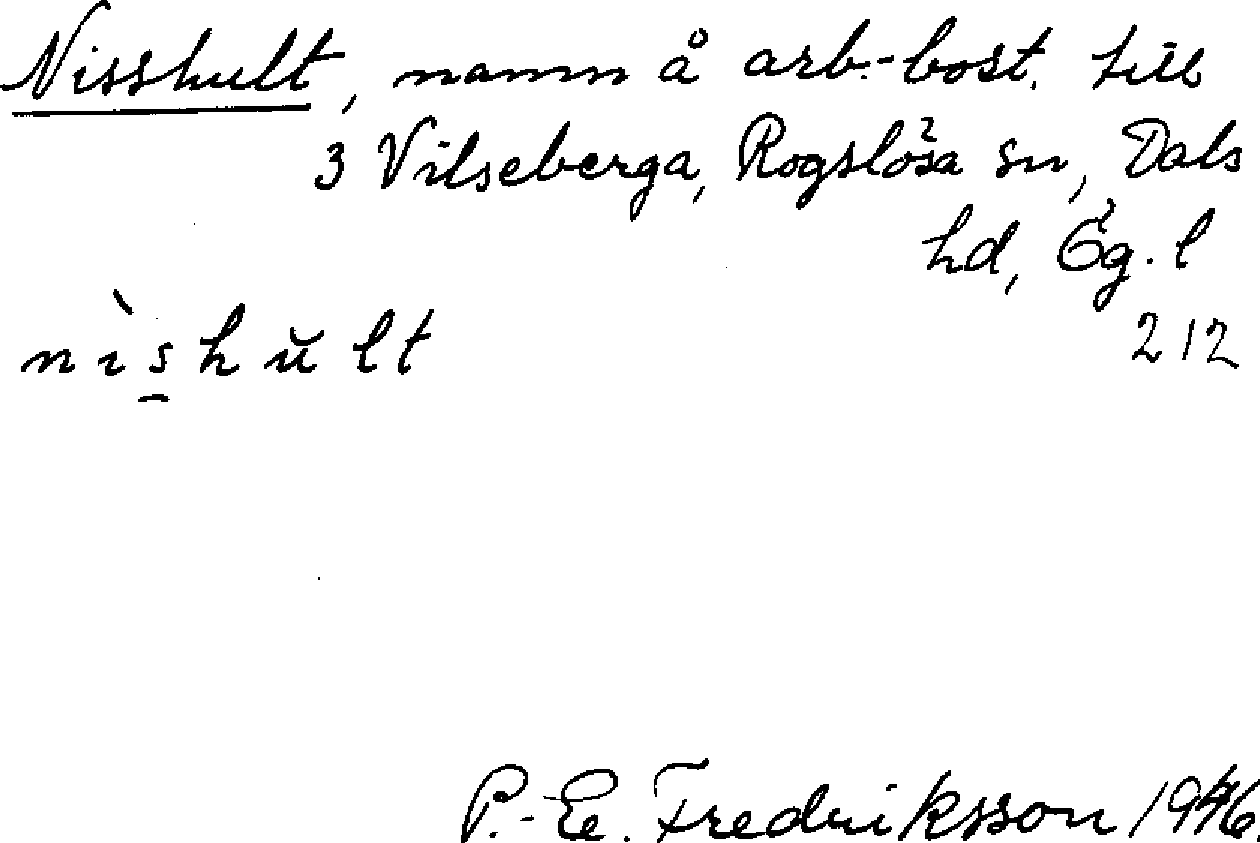 Nisshult, namn å arb.-bost. till
3 Vilseberga, Rogslösa sn, Dals
hd, Ög. l
212
nìs̱hŭlt
P.-E. Fredriksson 1946.